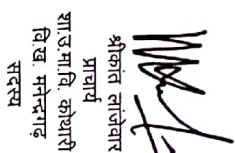 श्रीकांत लांजेवार
प्राचार्य
शा.उ.मा.वि. कोथारी
वि.ख. मनेन्द्रगढ़
सदस्य